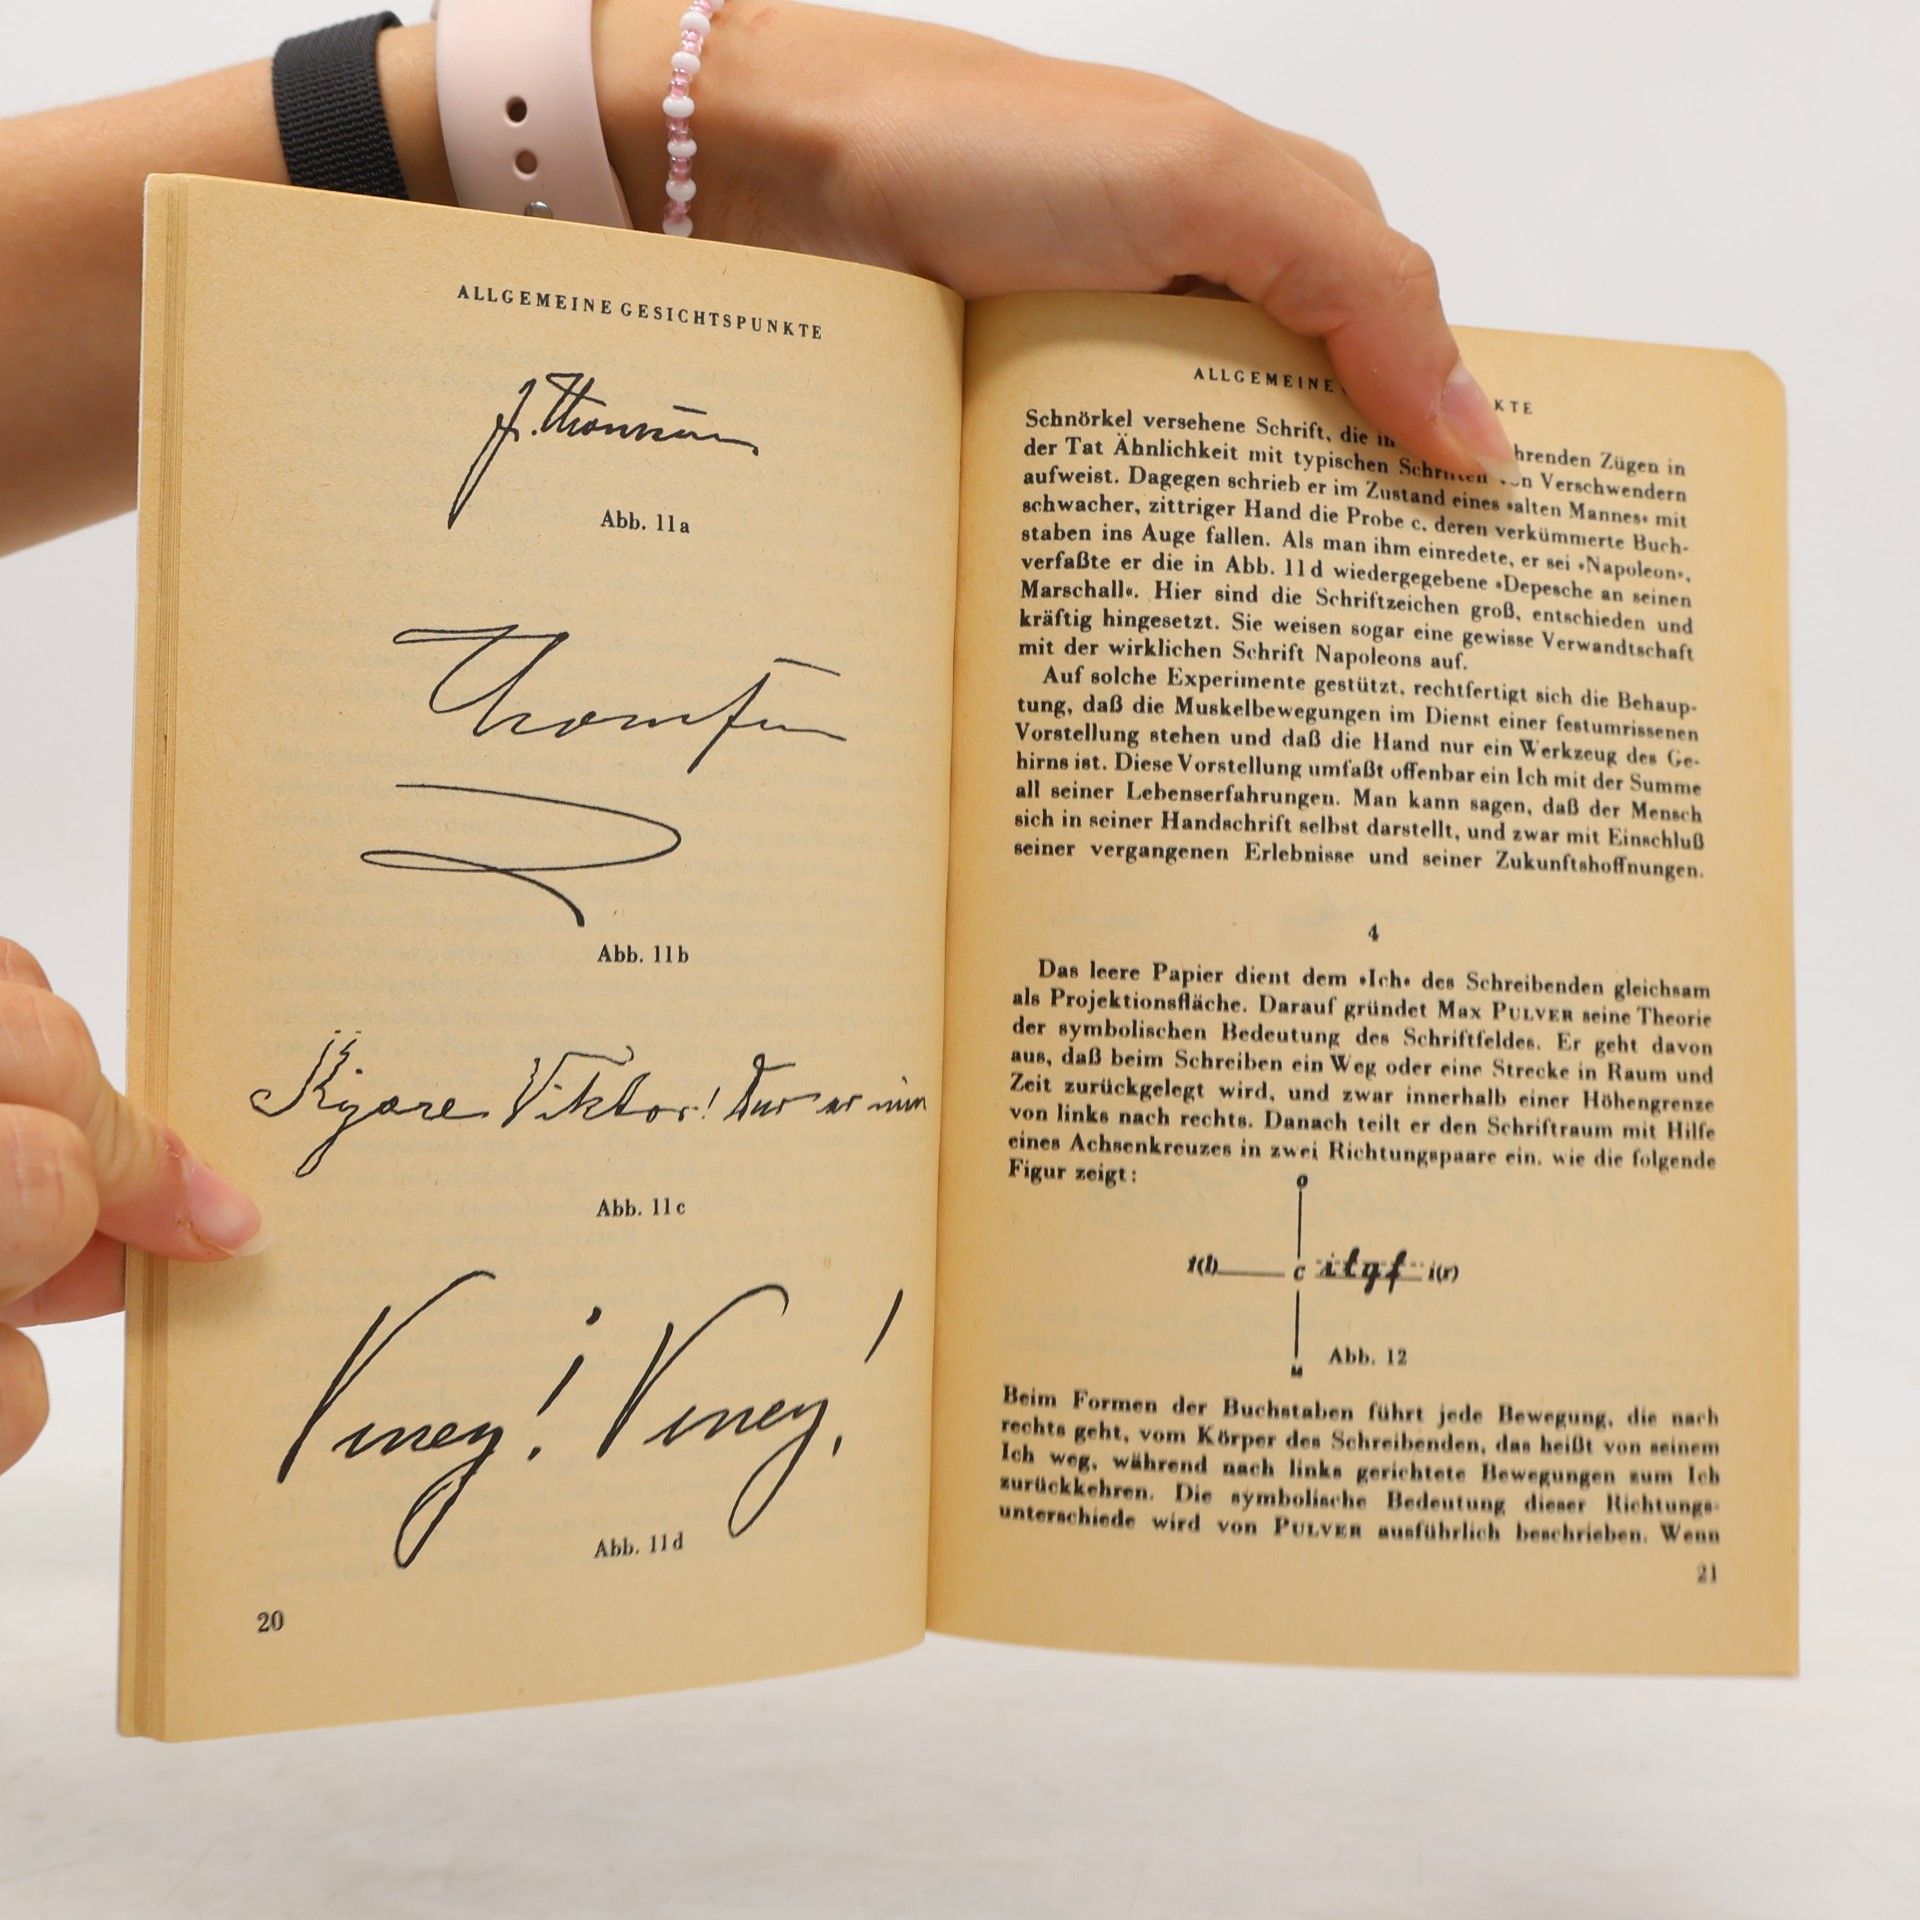 ALLGEMEINE GESICHTSPUNKTE
Abb. 11a
Abb. 11b
Viktor!
Abb. 11c
Viney! Viney!
Abb. 11d
20
ALLGEMEINE KTE
Schnörkel versehene Schrift, die in hrenden Zügen in
der Tat Ähnlichkeit mit typischen Schriften von Verschwendern
aufweist. Dagegen schrieb er im Zustand eines »alten Mannes« mit
schwacher, zittriger Hand die Probe c, deren verkümmerte Buch-
staben ins Auge fallen. Als man ihm einredete, er sei »Napoleon«,
verfaßte er die in Abb. 11d wiedergegebene »Depesche an seinen
Marschall«. Hier sind die Schriftzeichen groß, entschieden und
kräftig hingesetzt. Sie weisen sogar eine gewisse Verwandtschaft
mit der wirklichen Schrift Napoleons auf.
Auf solche Experimente gestützt, rechtfertigt sich die Behaup-
tung, daß die Muskelbewegungen im Dienst einer festumrissenen
Vorstellung stehen und daß die Hand nur ein Werkzeug des Ge-
hirns ist. Diese Vorstellung umfaßt offenbar ein Ich mit der Summe
all seiner Lebenserfahrungen. Man kann sagen, daß der Mensch
sich in seiner Handschrift selbst darstellt, und zwar mit Einschluß
seiner vergangenen Erlebnisse und seiner Zukunftshoffnungen.
4
Das leere Papier dient dem »Ich« des Schreibenden gleichsam
als Projektionsfläche. Darauf gründet Max PULVER seine Theorie
der symbolischen Bedeutung des Schriftfeldes. Er geht davon
aus, daß beim Schreiben ein Weg oder eine Strecke in Raum und
Zeit zurückgelegt wird, und zwar innerhalb einer Höhengrenze
von links nach rechts. Danach teilt er den Schriftraum mit Hilfe
eines Achsenkreuzes in zwei Richtungspaare ein, wie die folgende
Figur zeigt:
O
t(l) C i(r)
M
Abb. 12
Beim Formen der Buchstaben führt jede Bewegung, die nach
rechts geht, vom Körper des Schreibenden, das heißt von seinem
Ich weg, während nach links gerichtete Bewegungen zum Ich
zurückkehren. Die symbolische Bedeutung dieser Richtungs-
unterschiede wird von PULVER ausführlich beschrieben. Wenn
21